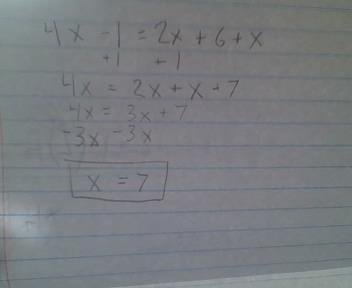 4x - 1 = 2x + 6 + x
+1 +1
4x = 2x + x + 7
4x = 3x + 7
-3x -3x
x = 7